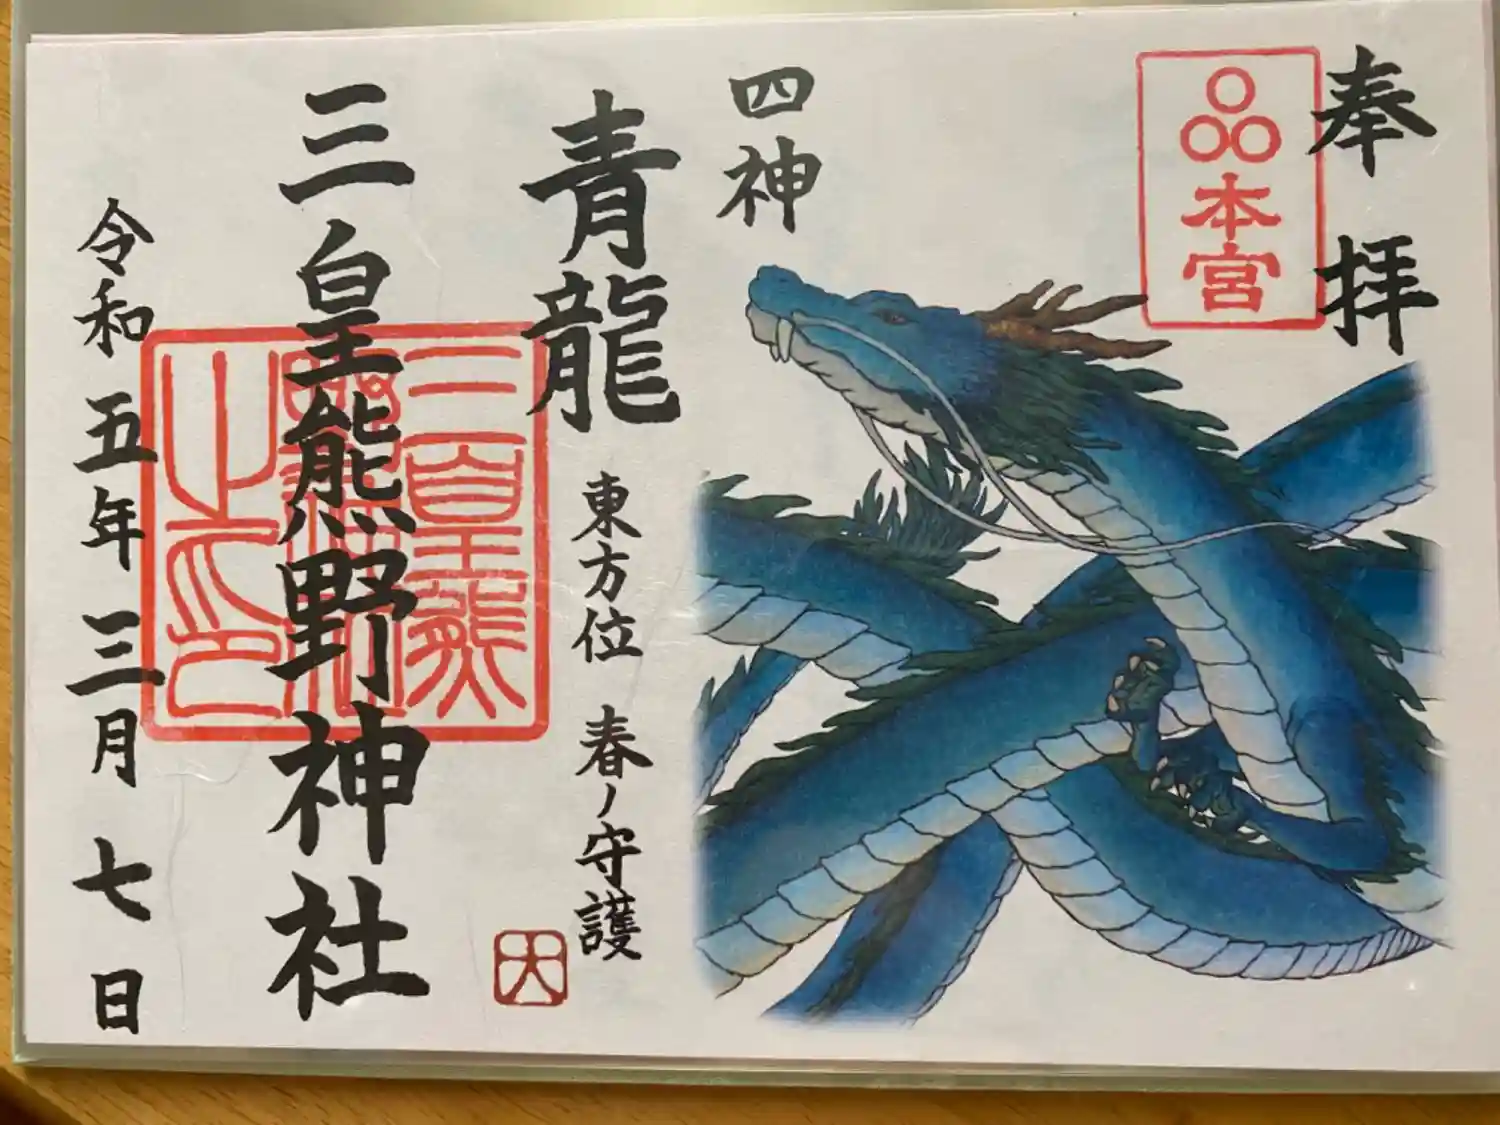 奉拝
本宮
四神
青龍
東方位 春ノ守護
大
三皇熊野神社
三皇熊
野神社
之印
令和五年三月七日